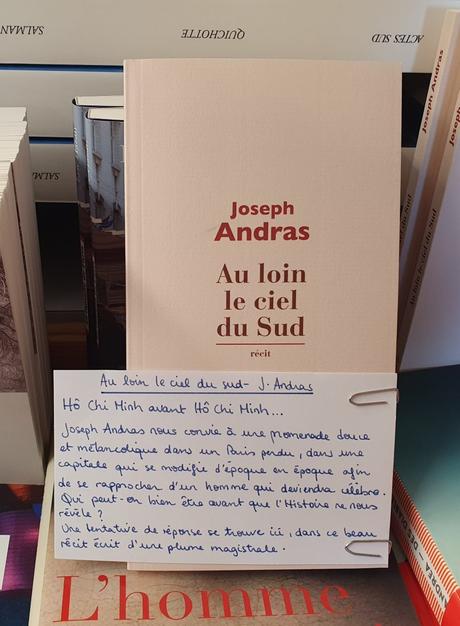 SALMAN
QUICHOTTE
ACTES SUD
Joseph
Andras
Au loin
le ciel
du Sud
récit
Joseph Andras
Joseph Andras
Au loin le ciel du Sud
Au loin le ciel du sud - J. Andras
Hô Chi Minh avant Hô Chi Minh...
Joseph Andras nous convie à une promenade douce
et mélancolique dans un Paris perdu, dans une
capitale qui se modifie d'époque en époque afin
de se rapprocher d'un homme qui deviendra célèbre.
Qui peut-on bien être avant que l'Histoire ne nous
révèle ?
Une tentative de réponse se trouve ici, dans ce beau
récit écrit d'une plume magistrale.
L'homme
ANDREA